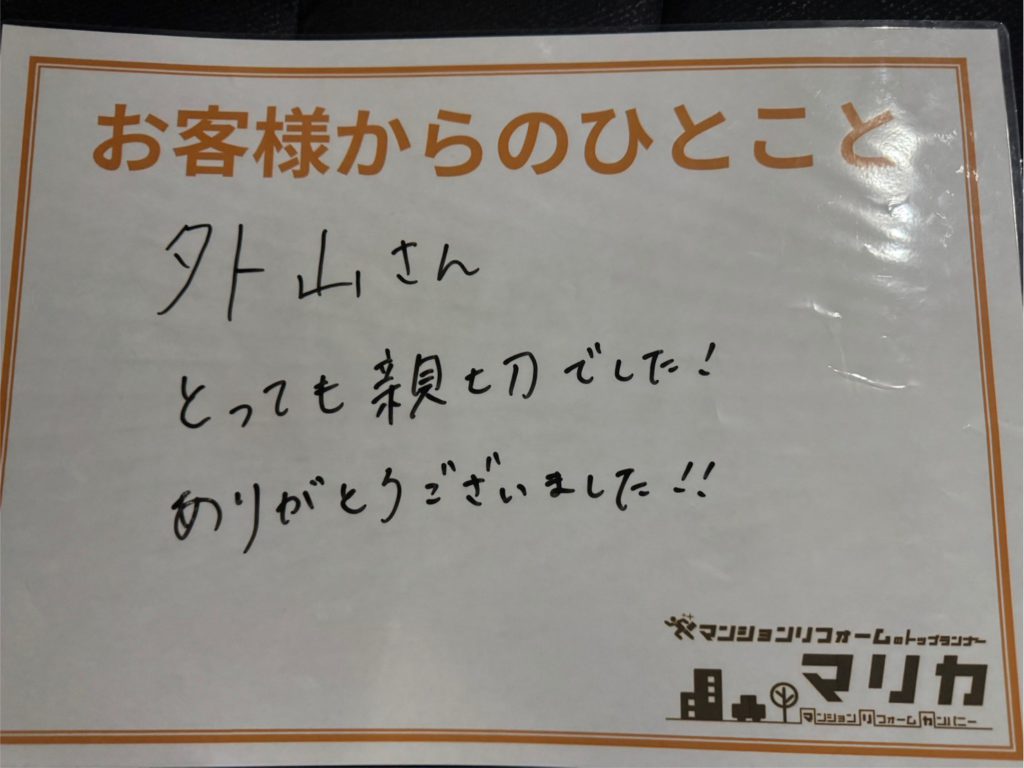 お客様からのひとこと
外山さん
とっても親切でした!
ありがとうございました!!
マンションリフォームのトップランナー
マリカ
マンションリフォームカンパニー